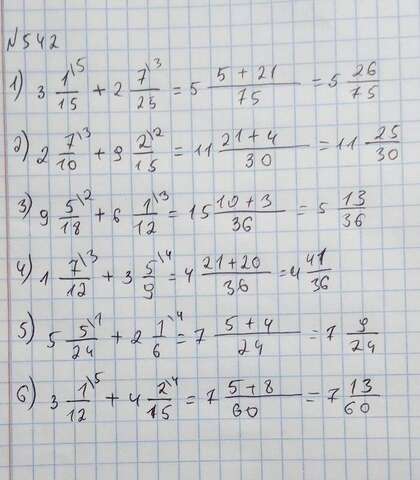 №542
1) 3 1\5/15 + 2 7\3/25 = 5 5+21/75 = 5 26/75
2) 2 7\3/10 + 9 2\2/15 = 11 21+4/30 = 11 25/30
3) 9 5\2/18 + 6 1\3/12 = 15 10+3/36 = 5 13/36
4) 1 7\3/12 + 3 5\4/9 = 4 21+20/36 = 4 41/36
5) 5 5\1/24 + 2 1\4/6 = 7 5+4/24 = 7 9/24
6) 3 1\5/12 + 4 2\4/15 = 7 5+8/60 = 7 13/60